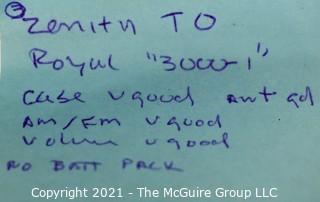 ③
Zenith TO
Royal "3000-1"
Case v good ant gd
Am/Fm v good
Volum v good
No Batt Pack
Copyright 2021 - The McGuire Group LLC